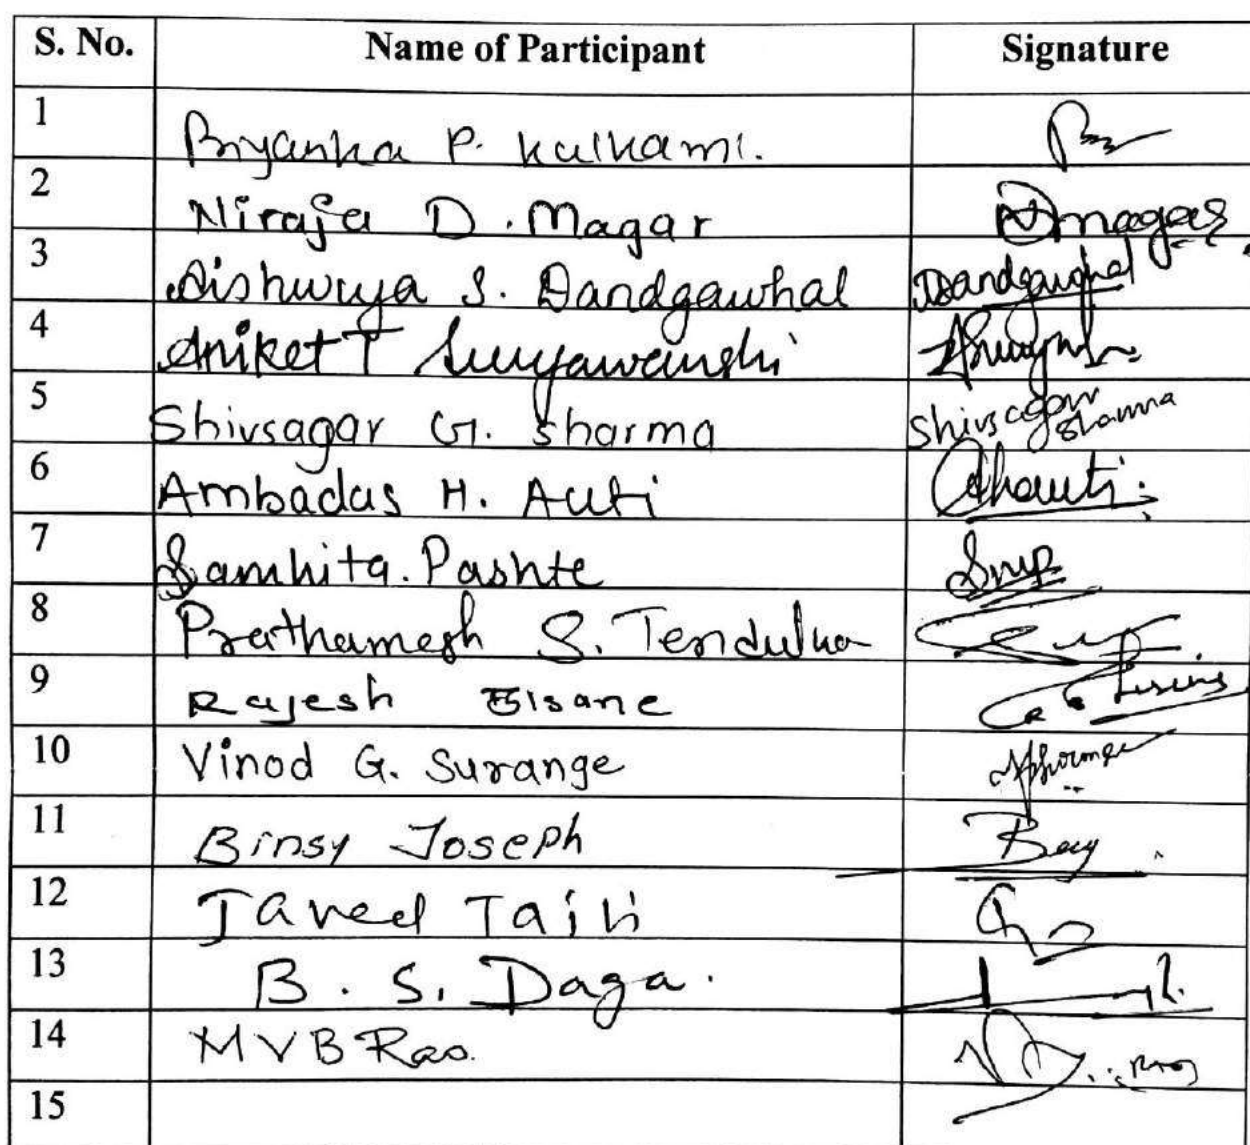 S. No. Name of Participant Signature
1 Priyanka P. Kulkarni.
2 Niraja D. Magar DMagar
3 Aishwrya S. Dandgawhal Dandgawhal
4 Aniket T Suryawanshi
5 Shivsagar G. Sharma Shivsagar Sharma
6 Ambadas H. Auti Ahauti.
7 Samhita. Pashte Smp
8 Prathamesh S. Tendulka
9 Rajesh Bisane
10 Vinod G. Surange
11 Binsy Joseph
12 Javed Taili
13 B. S. Daga.
14 MVB Rao.
15